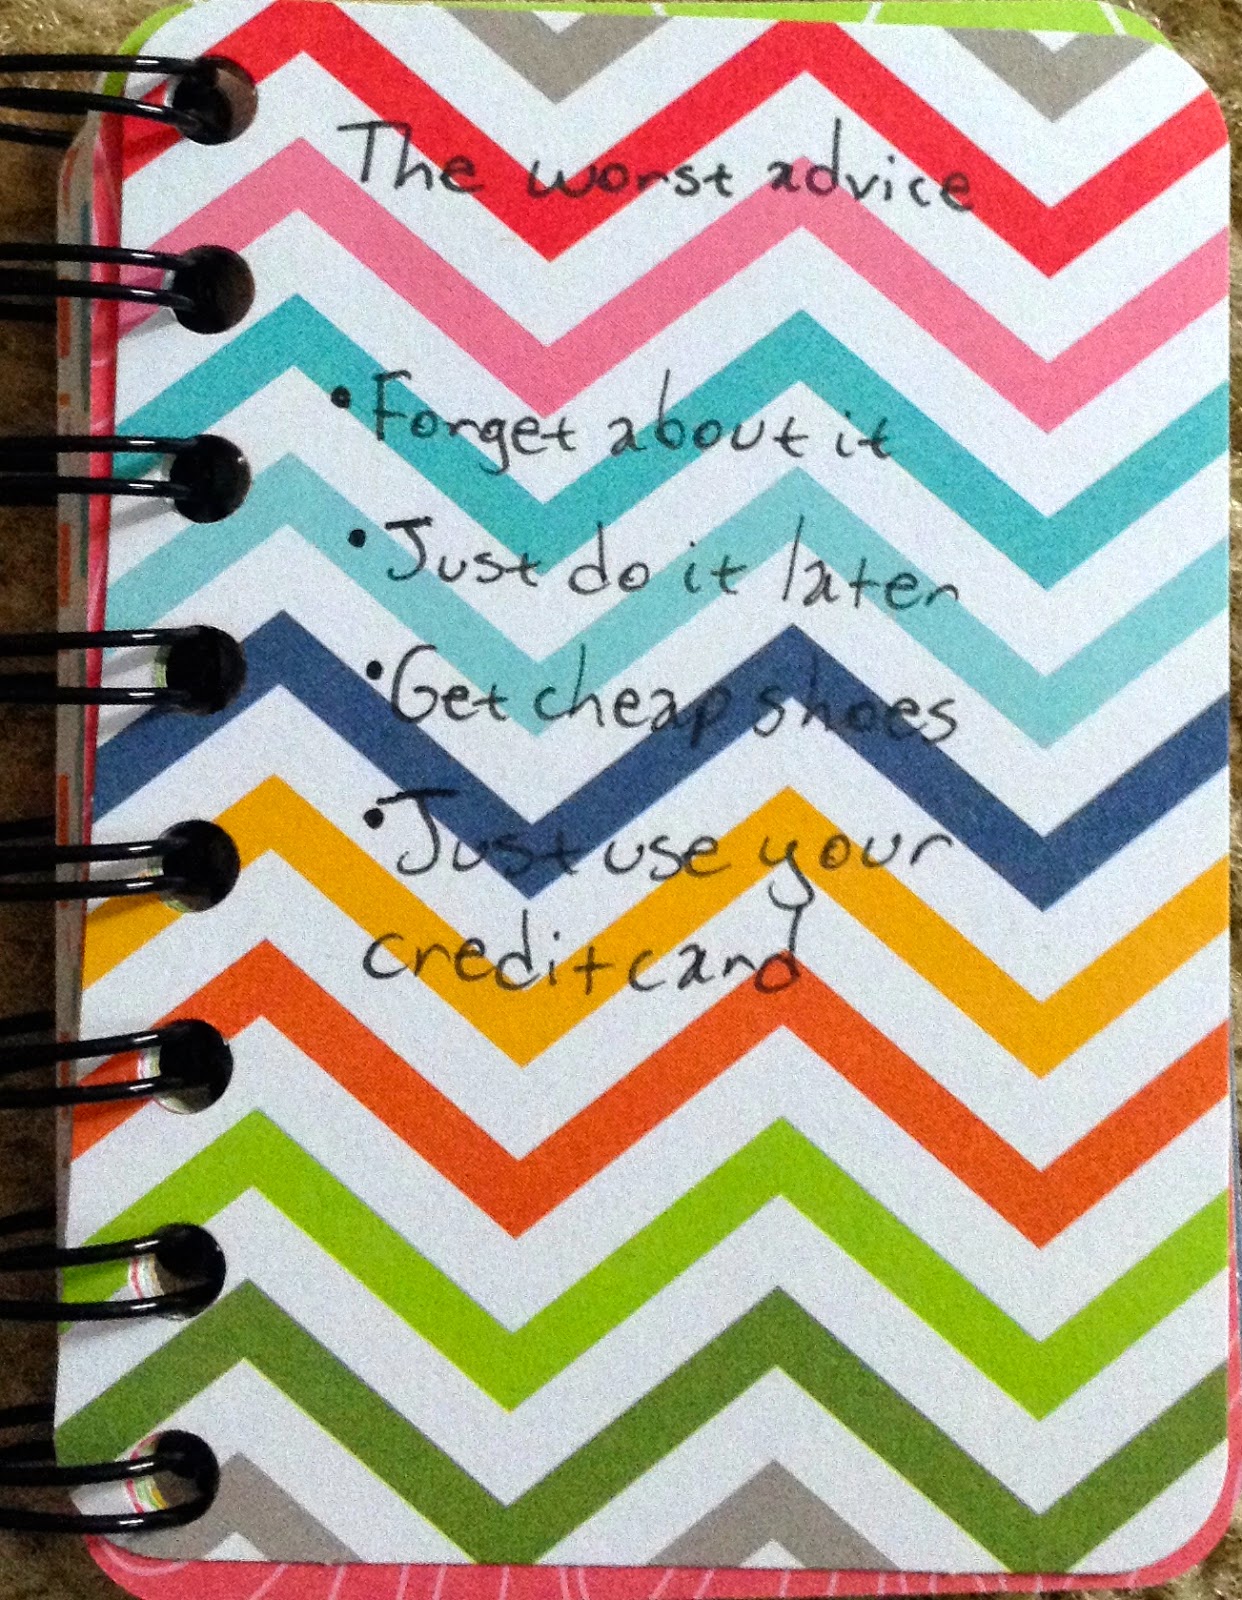 The worst advice
• Forget about it
• Just do it later
• Get cheap shoes
• Just use your
credit card